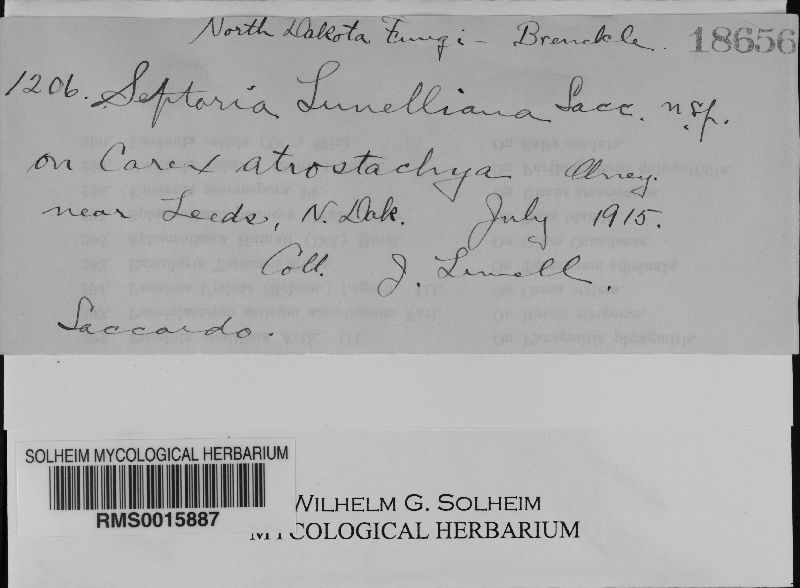 North Dakota Fungi - Brenckle. 18656
1206. Septoria Lunelliana Sacc. n.sp.
on Carex atrostachya Olney.
near Leeds, N. Dak. July 1915.
Coll. J. Lunell.
Saccardo.
SOLHEIM MYCOLOGICAL HERBARIUM
RMS0015887
WILHELM G. SOLHEIM
MYCOLOGICAL HERBARIUM